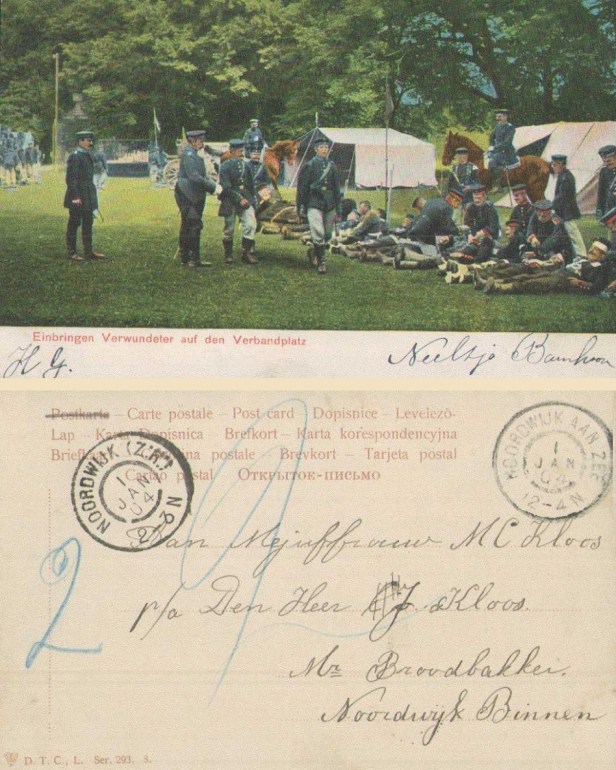 Einbringen Verwundeter auf den Verbandplatz
H G.
Neeltje
Postkarte – Carte postale – Post card – Dopisnice – Levelezö-
Lap – Karta Dopisnica – Brefkort – Karta korespondencyjna
postale – Brevkort – Tarjeta postal
postal – Открытое-письмо
NOORDWIJK (Z.H.)
1
JAN
04
2-3 N
NOORDWIJK AAN ZEE
1
JAN
04
12-4N
Aan Mejuffrouw MC Kloos
p/a Den Heer J. Kloos.
Mr Broodbakker.
Noordwijk Binnen
2
D. T. C., L. Ser. 293. 3.